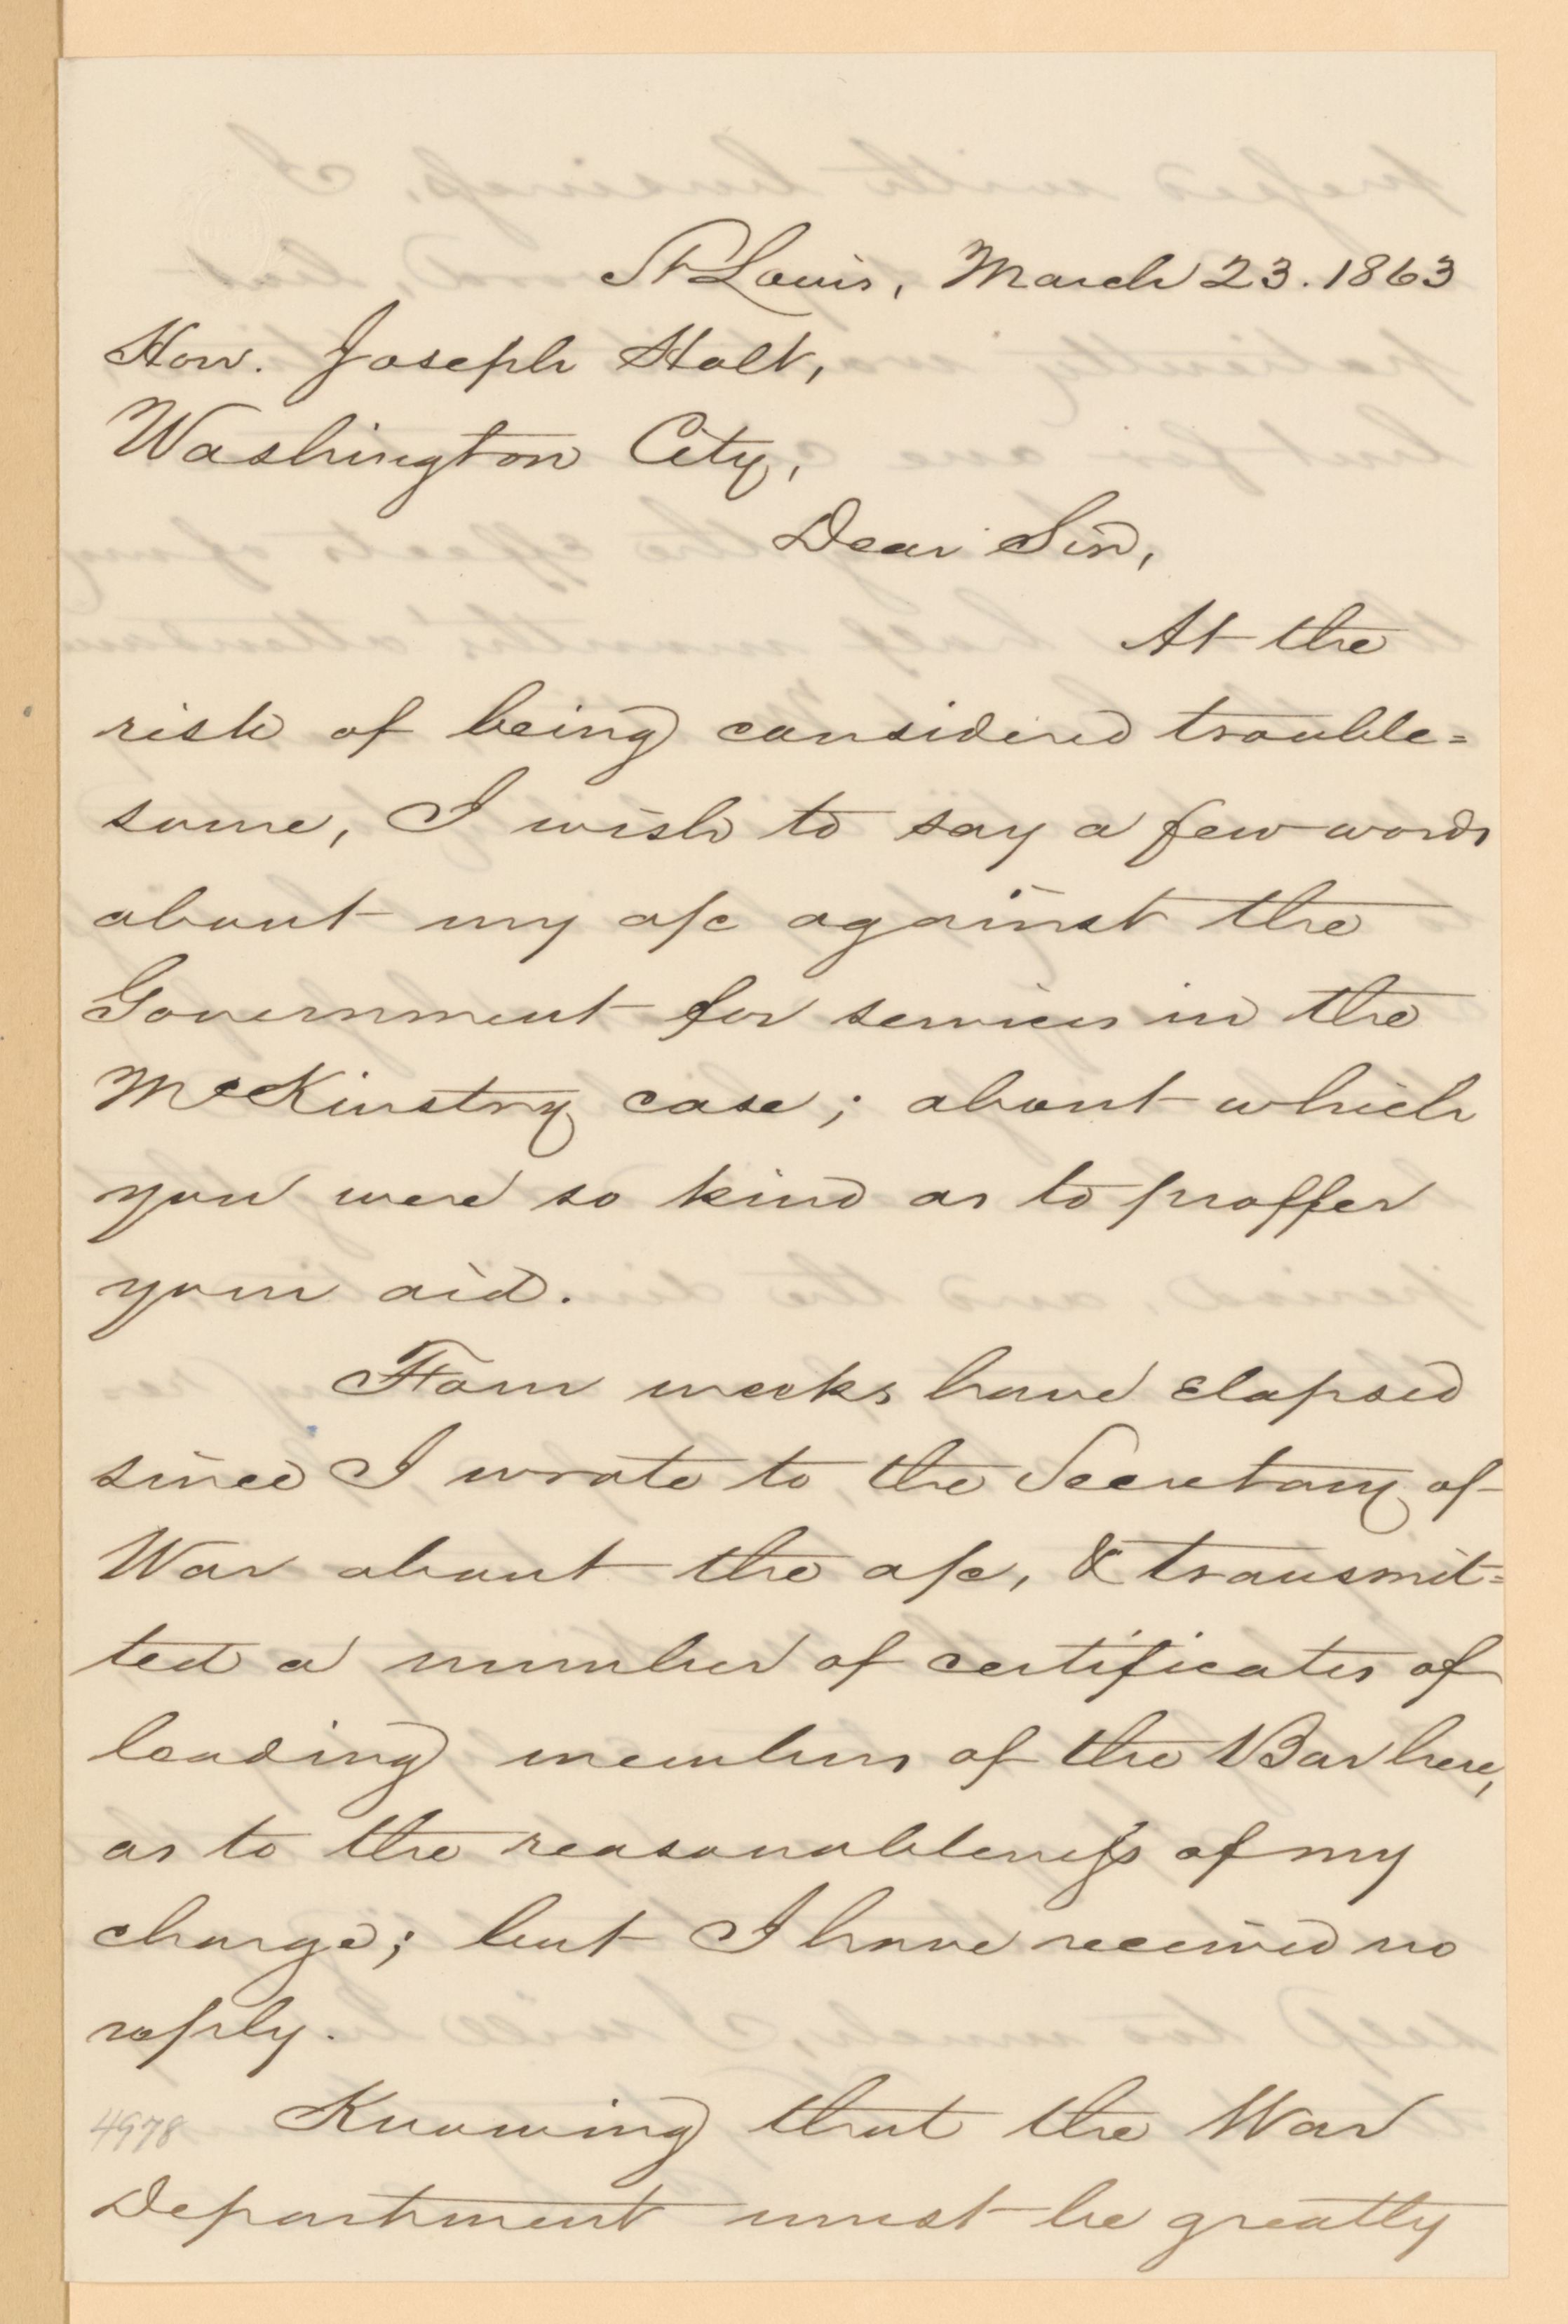 St Louis, March 23. 1863
Hon. Joseph Holt,
Washington City,
Dear Sir,
At the
risk of being considered trouble=
some, I wish to say a few words
about my a/c against the
Government for services in the
McKinstry case; about which
you were so kind as to proffer
your aid.
Four weeks have elapsed
since I wrote to the Secretary of
War about the a/c, & transmit=
ted a number of certificates of
leading members of the Bar here,
as to the reasonableness of my
charge; but I have received no
reply.
Knowing that the War
4978
Department must be greatly